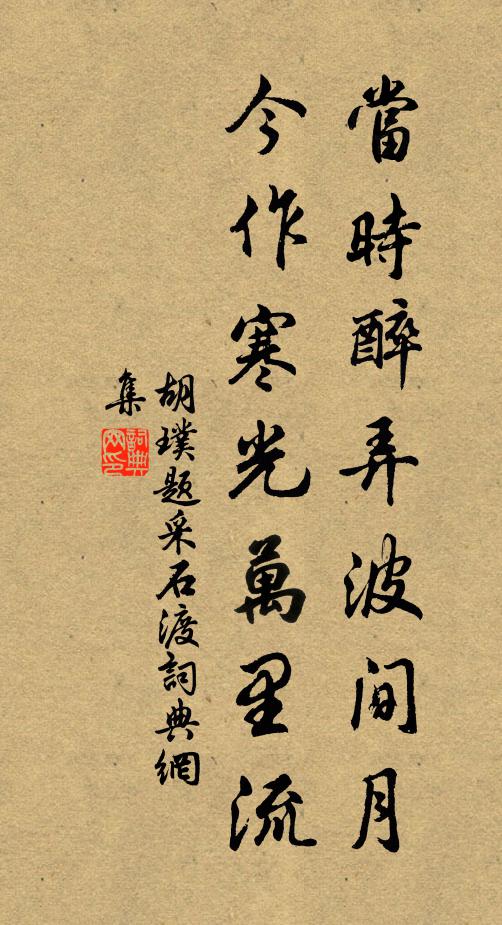 當時醉弄波間月
今作寒光萬里流
胡璞題采石渡詞典網
集
詞典
网印